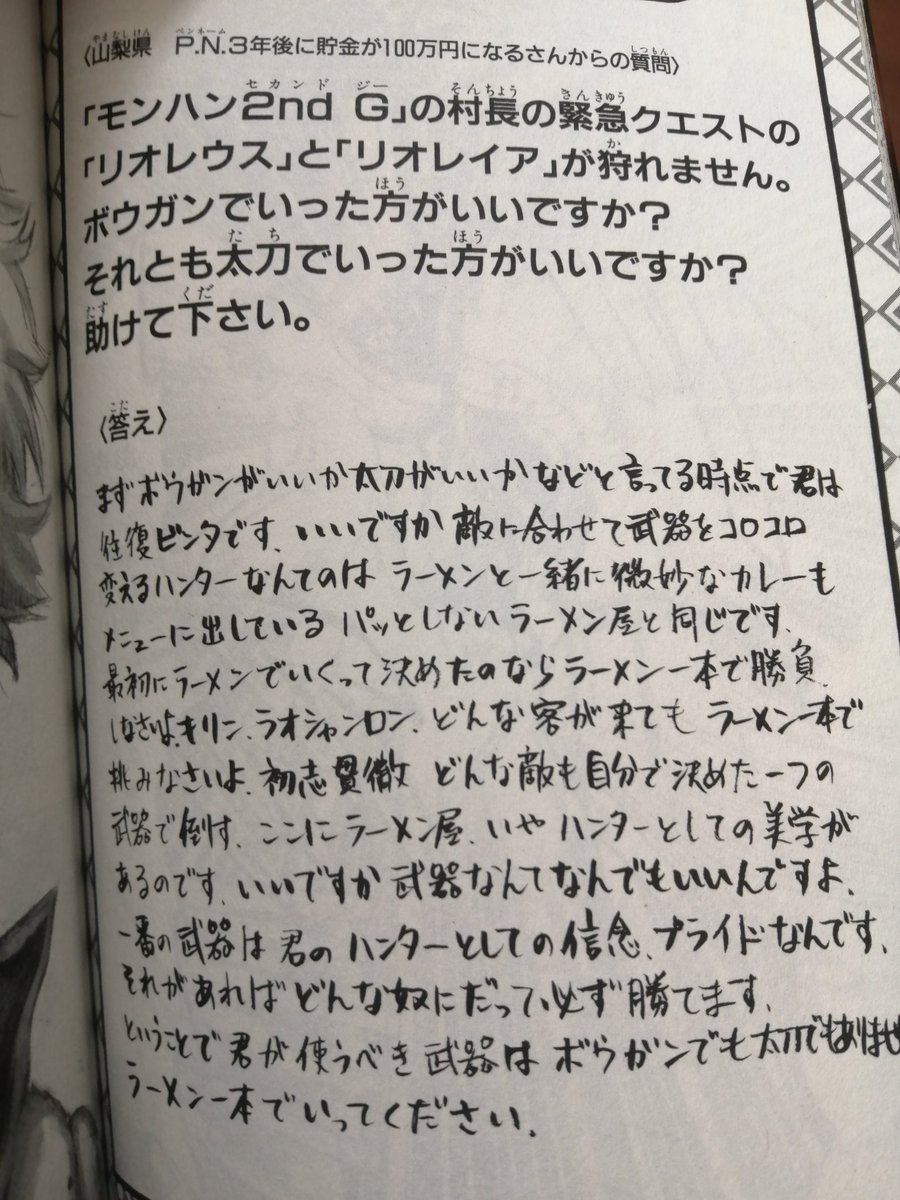 〈山梨県 P.N.3年後に貯金が100万円になるさんからの質問〉
「モンハン2nd G」の村長の緊急クエストの
「リオレウス」と「リオレイア」が狩れません。
ボウガンでいった方がいいですか?
それとも太刀でいった方がいいですか?
助けて下さい。
〈答え〉
まずボウガンがいいか太刀がいいかなどと言ってる時点で君は
往復ビンタです、いいですか敵に合わせて武器をコロコロ
変えるハンターなんてのは ラーメンと一緒に微妙なカレーも
メニューに出している パッとしないラーメン屋と同じです、
最初にラーメンでいくって決めたのならラーメン一本で勝負
しなさいよ、キリン、ラオシャンロン、どんな客が来ても ラーメン一本で
挑みなさいよ、初志貫徹 どんな敵も自分で決めた一つの
武器で倒す、ここにラーメン屋、いや ハンターとしての美学が
あるのです、いいですか 武器なんてなんでもいいんですよ、
一番の武器は 君のハンターとしての信念、プライドなんです、
それがあれば どんな奴にだって必ず勝てます、
ということで 君が使うべき武器は ボウガンでも太刀でもありませ
ラーメン一本でいってください、